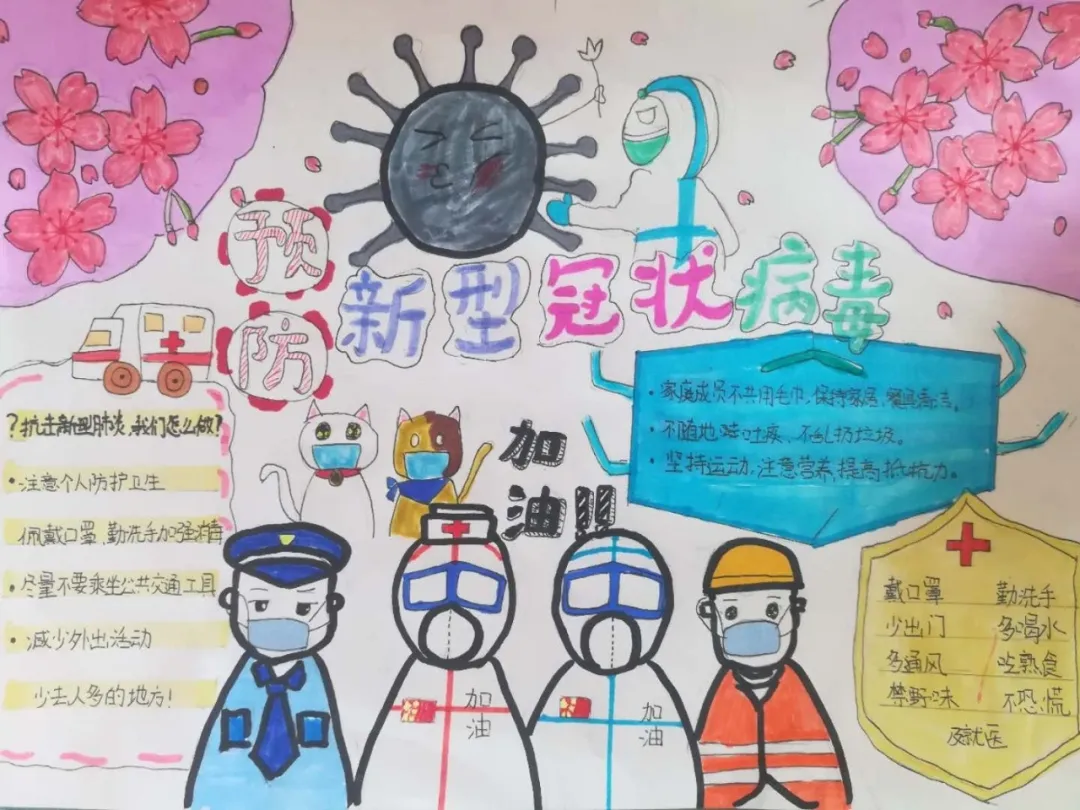 预防
新型冠状病毒
?抗击新型肺炎,我们怎么做?
·注意个人防护卫生
佩戴口罩,勤洗手加强消毒
·尽量不要乘坐公共交通工具
·减少外出活动
少去人多的地方!
加油!!
·家庭成员不共用毛巾,保持家居、餐具清洁。
·不随地吐痰、不乱扔垃圾。
·坚持运动,注意营养,提高抵抗力。
戴口罩 勤洗手
少出门 多喝水
多通风 吃熟食
禁野味 不恐慌
及就医
加油
加油